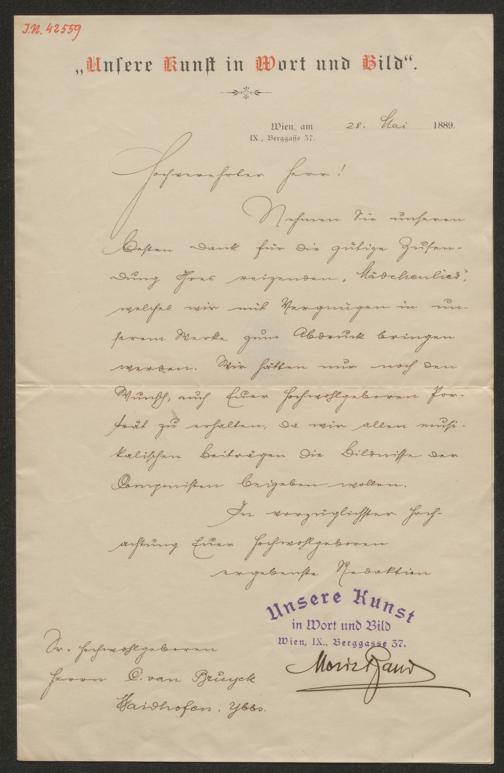 I.N. 42559
„Unsere Kunst in Wort und Bild“.
Wien, am 28. Mai 1889.
IX., Berggasse 37.
Hochverehrter Herr!
Nehmen Sie unseren
besten Dank für die gütige Zusen-
dung Ihres reizenden „Mädchenlied“,
welches wir mit Vergnügen in un-
serem Werke zum Abdruck bringen
werden. Wir hätten nur noch den
Wunsch, auch Euer Hochwohlgeboren Por-
trät zu erhalten, da wir allen musi-
kalischen Beiträgen die Bildnisse der
Componisten beigeben wollen.
In vorzüglichster Hoch-
achtung Euer Hochwohlgeboren
ergebenste Redaktion
Unsere Kunst
in Wort und Bild
Wien, IX., Berggasse 37.
Moriz Band
Sr. Hochwohlgeboren
Herrn C. van Bruyck
Waidhofen. Ybbs.